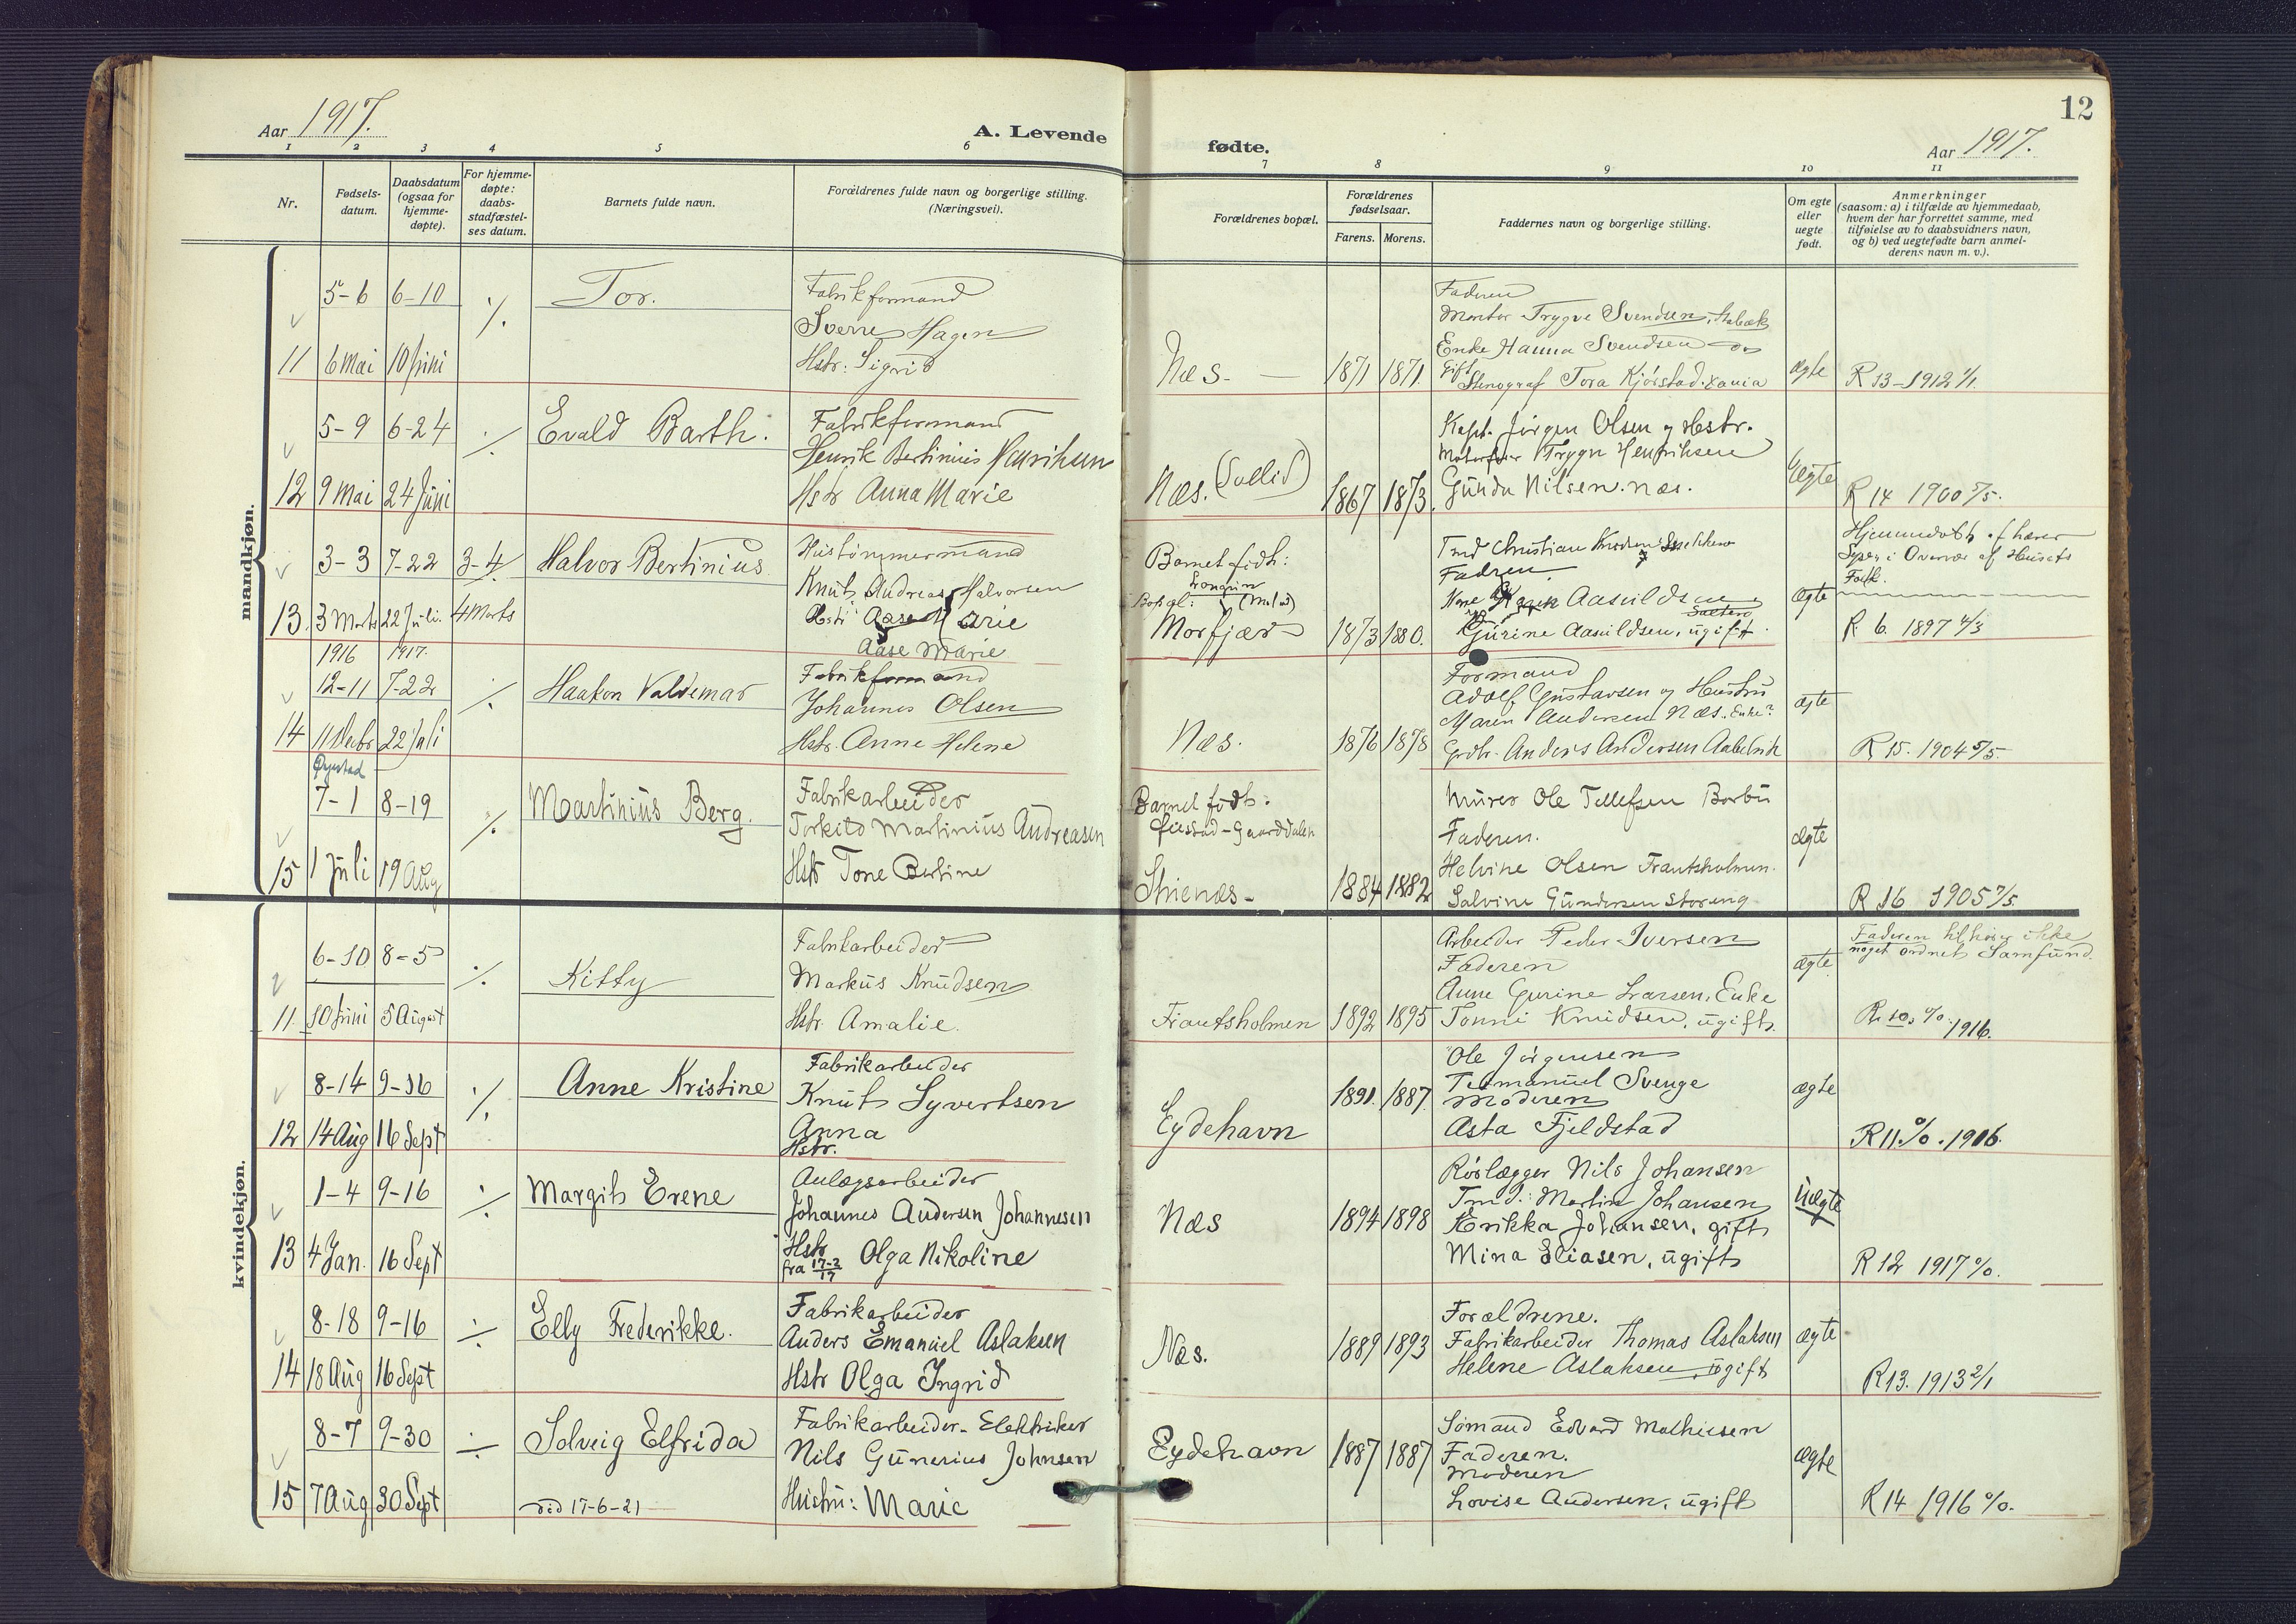 12
Aar 1917.
A. Levende
fødte.
Aar 1917.
1 2 3 4 5 6 7 8 9 10 11
Nr.
Fødsels-
datum.
Daabsdatum
(ogsaa for
hjemme-
døpte).
For hjemme-
døpte:
daabs-
stadfæstel-
ses datum.
Barnets fulde navn.
Forældrenes fulde navn og borgerlige stilling.
(Næringsvei).
Forældrenes bopæl.
Forældrenes
fødselsaar.
Farens. Morens.
Faddernes navn og borgerlige stilling.
Om egte
eller
uegte
født.
Anmerkninger
(saasom: a) i tilfælde av hjemmedaab,
hvem der har forrettet samme, med
tilføielse av to daabsvidners navn,
og b) ved uegtefødte barn anmel-
derens navn m. v.).
mandkjøn.
5-6 6-10 ./. Tor.
11 6 Mai 10 Juni
Fabrikformand
Sverre Hagen
Hstr: Sigrid
Næs. — 1871 1871.
Faderen
Trygve Svendsen,
Enke Hanna Svendsen do
Gift
Stenograf Tora Kjørstad.
ægte
R 13-1912 1/1.
5-9 6-24 ./. Evald Barth.
12 9 Mai 24 Juni
Fabrikformand
Henrik Bertinius
Hstr Anna Marie
Næs. 1867 1873.
Kapt. Jörgen Olsen og Hstr.
Trygve Henriksen
Gunda Nilsen. Næs.
Ægte
R 14 1900 5/5.
3-3 7-22 3-4 Halvor Bertinius
13. 3 Marts 22 Juli. 4 Marts
Hustömmermand
Knut Andreas Halvorsen
Hstr Aase Marie
Aase Marie
Barnet födt:
Bopæl:
Morfjær 1873 1880.
Christian Knudsen
Faderen.
Karen Aasvildsen
Gurine Aasvildsen, ugift.
ægte
Hjemmedöbt af
i Overvær af Husets
Folk.
R. 6. 1897 4/3
1916 1917.
12-11 7-22 ./. Haakon Valdemar
14 11 Decbr 22 Juli
Fabrikformand
Johannes Olsen
Hstr. Anne Helene
Næs. 1876 1878
Formand
Adolf Gustavsen og Hustru
Maren Andersen Næs. Enke?
Anders Andersen
ægte
R 15. 1904 5/5.
Øyestad
7-1 8-19 ./. Martinius Berg.
15 1 Juli 19 Aug
Fabrikarbeider
Torkild Martinius Andreasen
Hstr Tone Bertine
Barnet födt:
Strenæs- 1884 1882
Murer Ole Tellefsen Barbu
Faderen.
Helvine Olsen Frantsholmen.
Salvine Gundersen Storeng
ægte
R 16 1905 7/5.
kvindekjøn.
6-10 8-5 ./. Kitty
11. 10 Juni 5 August
Fabrikarbeider
Markus Knudsen
Hstr. Amalie.
Frantsholmen 1892 1895
Arbeider Peder Iversen
Faderen
Anne Gurine Larsen, Enke
Tonni Knudsen, ugift.
ægte
Faderen tilhører ikke
noget ordnet Samfund.
R. 10. %. 1916.
8-14 9-16 ./. Anne Kristine
12 14 Aug 16 Sept
Fabrikarbeider
Knut Syvertsen
Anna
Hstr.
Eydehavn 1891. 1887.
Ole Jörgensen
Svenge
Moderen
Asta Fjeldstad
ægte
R 11. %. 1916.
1-4 9-16 ./. Margit Erene
13 4 Jan. 16 Sept
Anlægsarbeider
Johannes Andersen Johannesen
Hstr
fra 17-2/17 Olga Nikoline
Næs 1894 1898
Rörlægger Nils Johansen
Martin Johansen
Erikka Johansen, gift
Mina Eliasen, ugift
Uægte
R 12 1917 %.
8-18 9-16 ./. Elly Frederikke.
14 18 Aug 16 Sept
Fabrikarbeider
Anders Emanuel Aslaksen
Hstr Olga Ingrid
Næs. 1889 1893
Forældrene.
Fabrikarbeider Thomas Aslaksen
Helene Aslaksen, ugift
ægte
R 13. 1913 2/1
8-7 9-30 ./. Solveig Elfrida
15 7 Aug 30 Sept död 17-6-21
Fabrikarbeider-Elektriker
Nils Gunerius Johnsen
Hustru: Marie
Eydehavn 1887 1887
Sömand Edvard Mathiesen
Faderen.
Moderen
Lovise Andersen, ugift
ægte
R 14 1916 %.